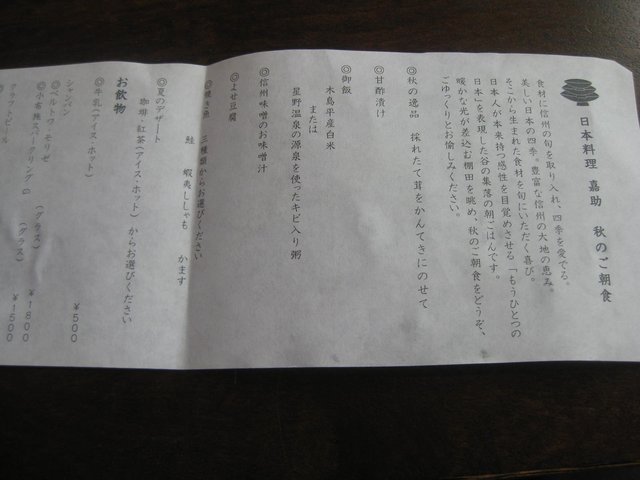 日本料理 嘉助 秋のご朝食
食材に信州の旬を取り入れ、四季を愛でる。
美しい日本の四季。豊富な信州の大地の恵み。
そこから生まれた食材を旬にいただく喜び。
日本人が本来持つ感性を目覚めさせる「もうひとつの
日本」を表現した谷の集落の朝ごはんです。
暖かな光が差込む棚田を眺め、秋のご朝食をどうぞ、
ごゆっくりとお愉しみください。
◎秋の逸品 採れたて茸をかんてきにのせて
◎甘酢漬け
◎御飯
木島平産白米
または
星野温泉の源泉を使ったキビ入り粥
◎信州味噌のお味噌汁
◎よせ豆腐
◎焼き魚 三種類からお選びください
鮭 蝦夷ししゃも かます
◎夏のデザート
珈琲・紅茶(アイス・ホット) からお選びください
お飲物
◎牛乳(アイス・ホット) ¥500
シャンパン
◎ベルトワ そりせ (グラス) ¥1800
(グラス) ¥1500
クラフトビール